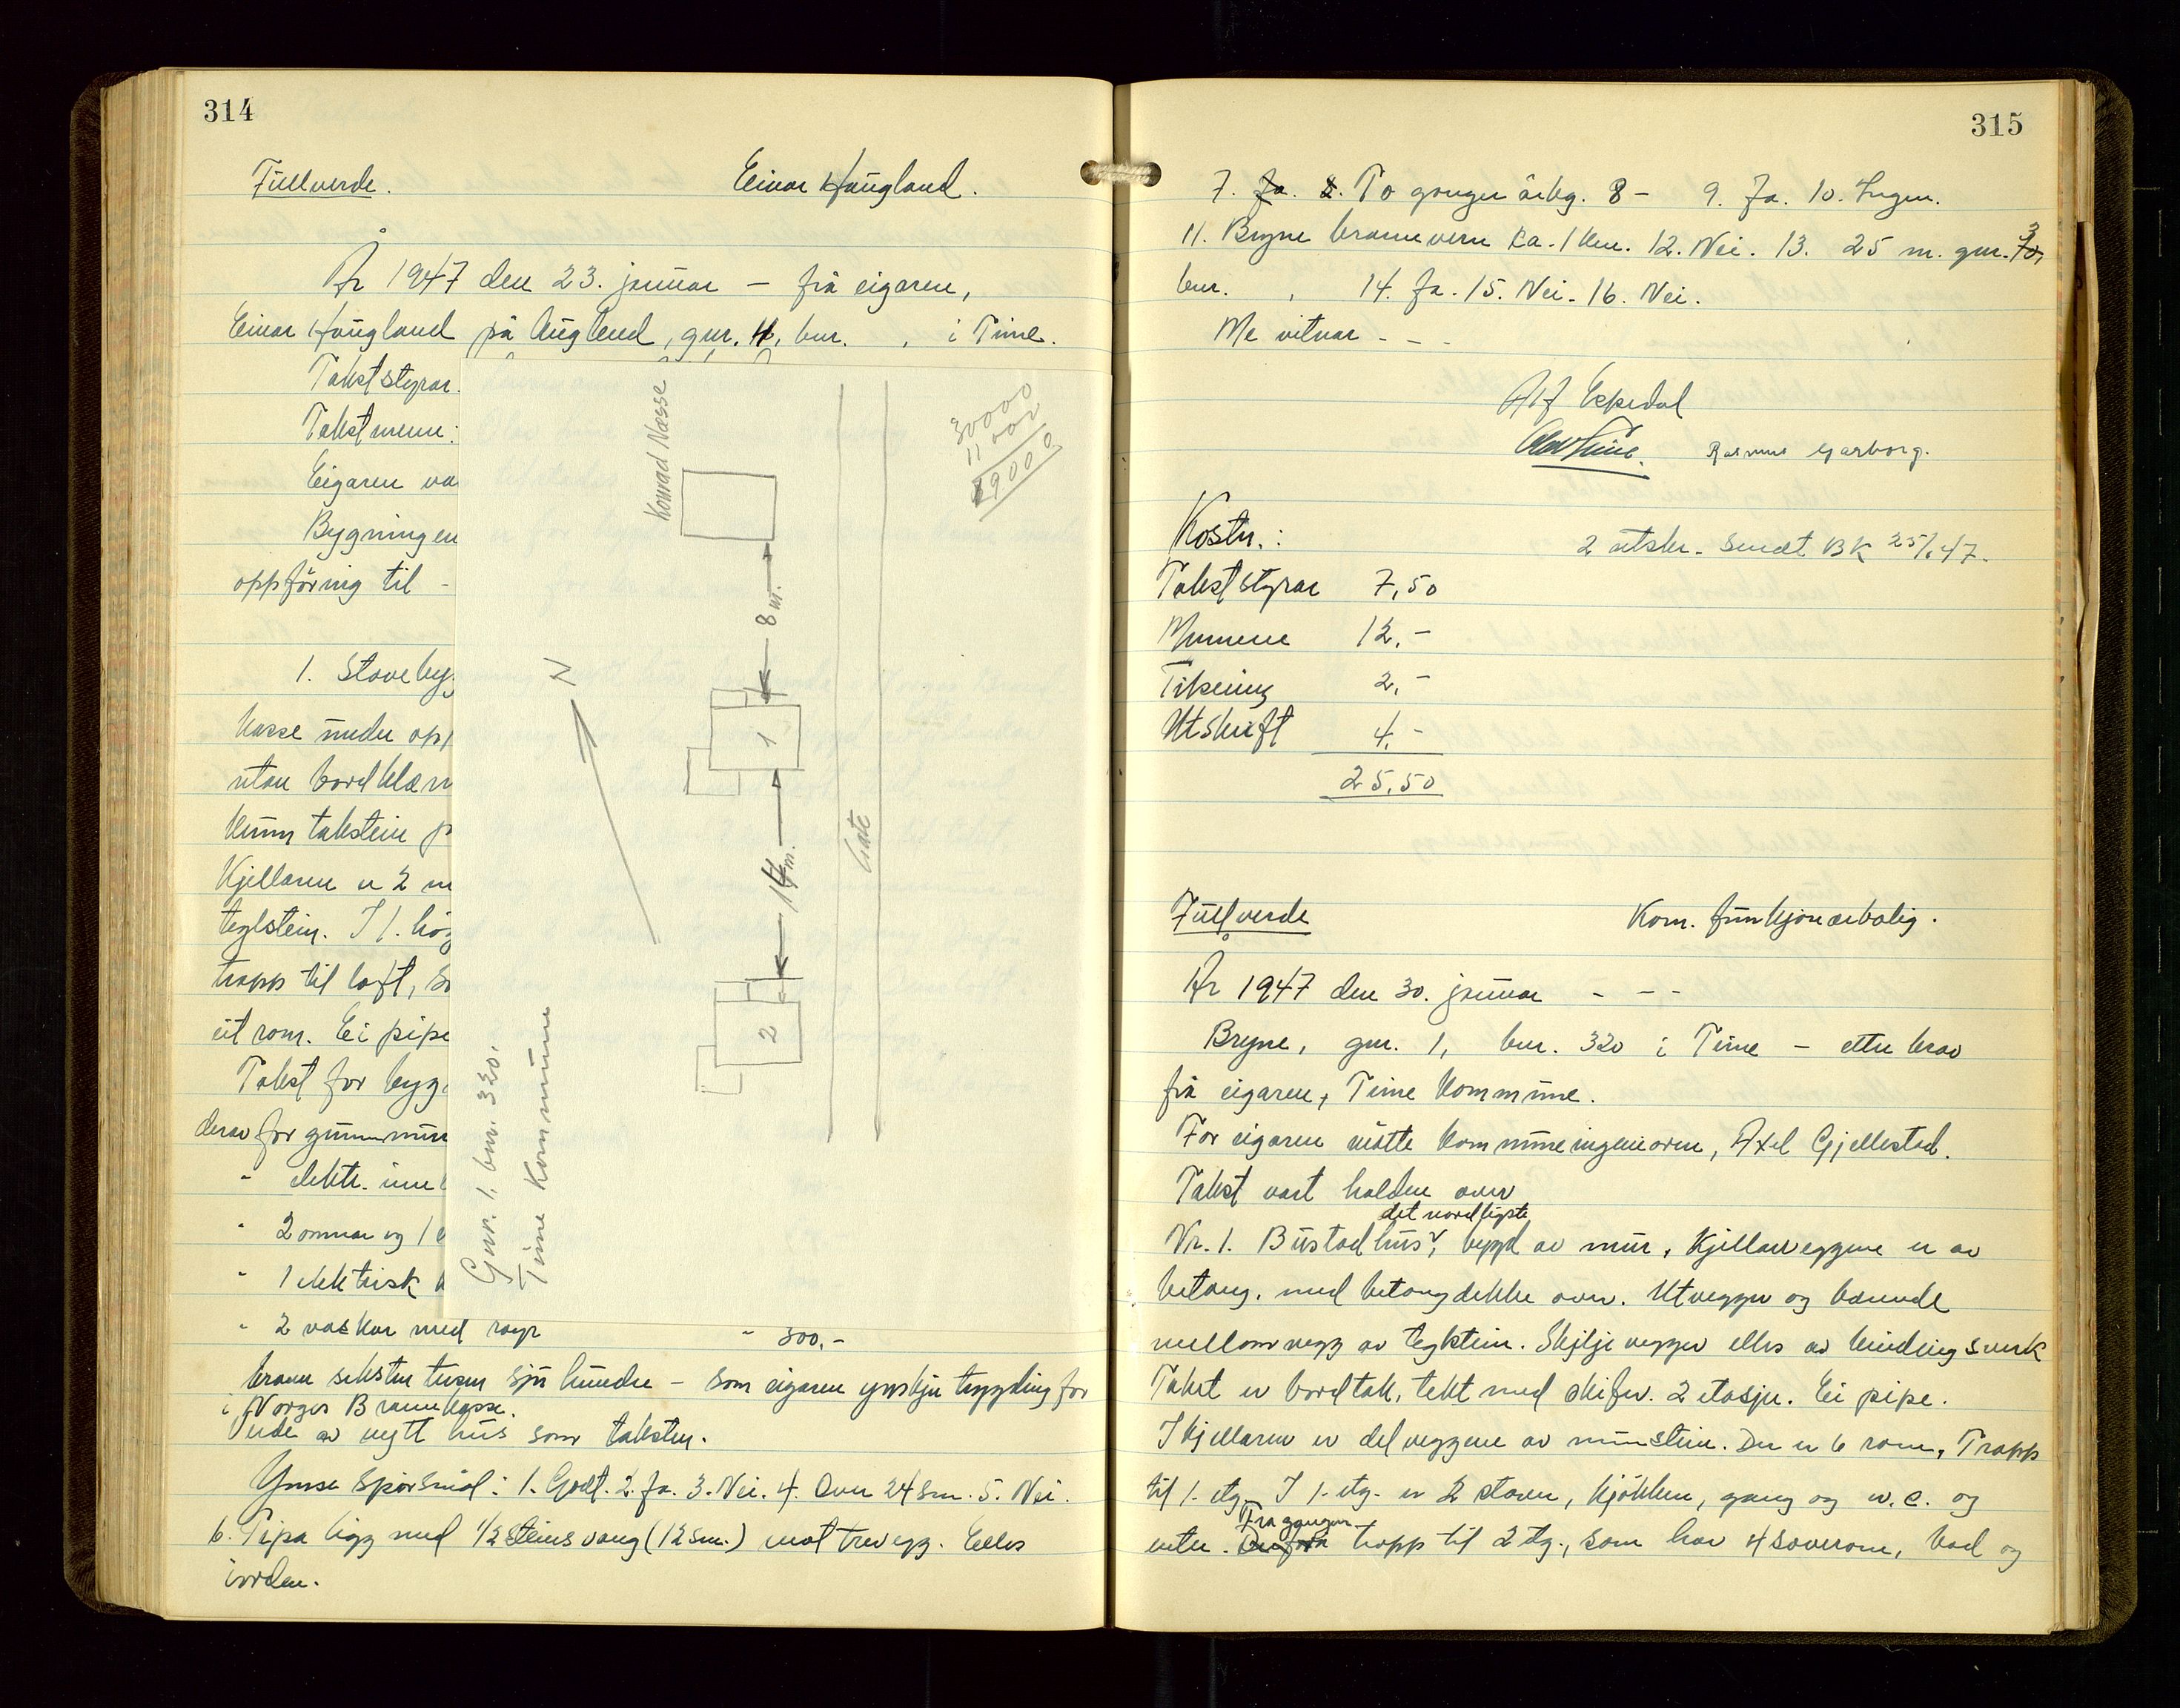 314
Fullverde. Einar Haugland.
År 1947 den 23. januar – frå eigaren,
Einar Haugland på Auglend, gnr. 4, bnr. , i Time.
Takststyrar.
Takstmenn:
Eigaren va
Bygningen
oppföring til –
1. Stoveby
kasse under opp
utan bordklæn
krum takstein p
Kjellaren er 2 m
teglstein. I 1. hög
trapp til loft, so
eit rom. Ei pipe
Takst for byg
derav for grunnmur
" elektr. inn
" 2 omnar og 1
" 1 elektrisk
" 2 vaskar med røyr " 300,-
kroner seksten tusen sju hundre – som eigaren ynskjer trygding for
i Norges Brannkasse.
Verde av nytt hus som taksten.
Ymse spörsmål: 1. Godt. 2. Ja. 3. Nei. 4. Over 24 sm. 5. Nei.
6. Pipa ligg med 1/2 steins vang (12 sm.) mot trevegg. Elles
i orden.
Konrad Næsse
30000
11000
19000
8 m.
N
1
14 m.
Gate
2
Gnr. 1, bnr. 320.
Time Kommune
315
7. Ja. 8. To gonger årleg. 8 – 9. Ja. 10. Ingen.
11. Bryne brannvern ca. 1 km. 12. Nei. 13. 25 m. gnr. 3,
bnr. , 14. Ja. 15. Nei. 16. Nei.
Me vitnar - - -
Alf Espedal
Olav Time. Rasmus Garborg.
Kostn.: 2 utskr. sendt BK 25/1 47.
Takststyrar 7,50
Mennene 12,-
Tikning 2,-
Utskrift 4,-
25,50
Fullverde Kom. funksjonærbolig.
År 1947 den 30. januar - - -
Bryne, gnr. 1, bnr. 320 i Time – etter krav
frå eigaren, Time kommune.
For eigaren møtte kommuneingeniøren, Axel Gjellestad.
Takst vart halden over
det nordligste
Nr. 1. Bustadhus, bygd av mur. Kjellarveggene er av
betong, med betongdekke over. Utvegger og bærende
mellomvegg av teglstein. Skiljevegger elles av bindingsverk
Taket er bordtak, tekt med skifer. 2 etasjer. Ei pipe.
I kjellaren er delveggene av murstein. Der er 6 rom, Trapp
til 1. etg. I 1. etg. er 2 stover, kjökken, gang og w.c. og
Fra gangen
entre. Derfra trapp til 2 etg., som har 4 soverom, bad og